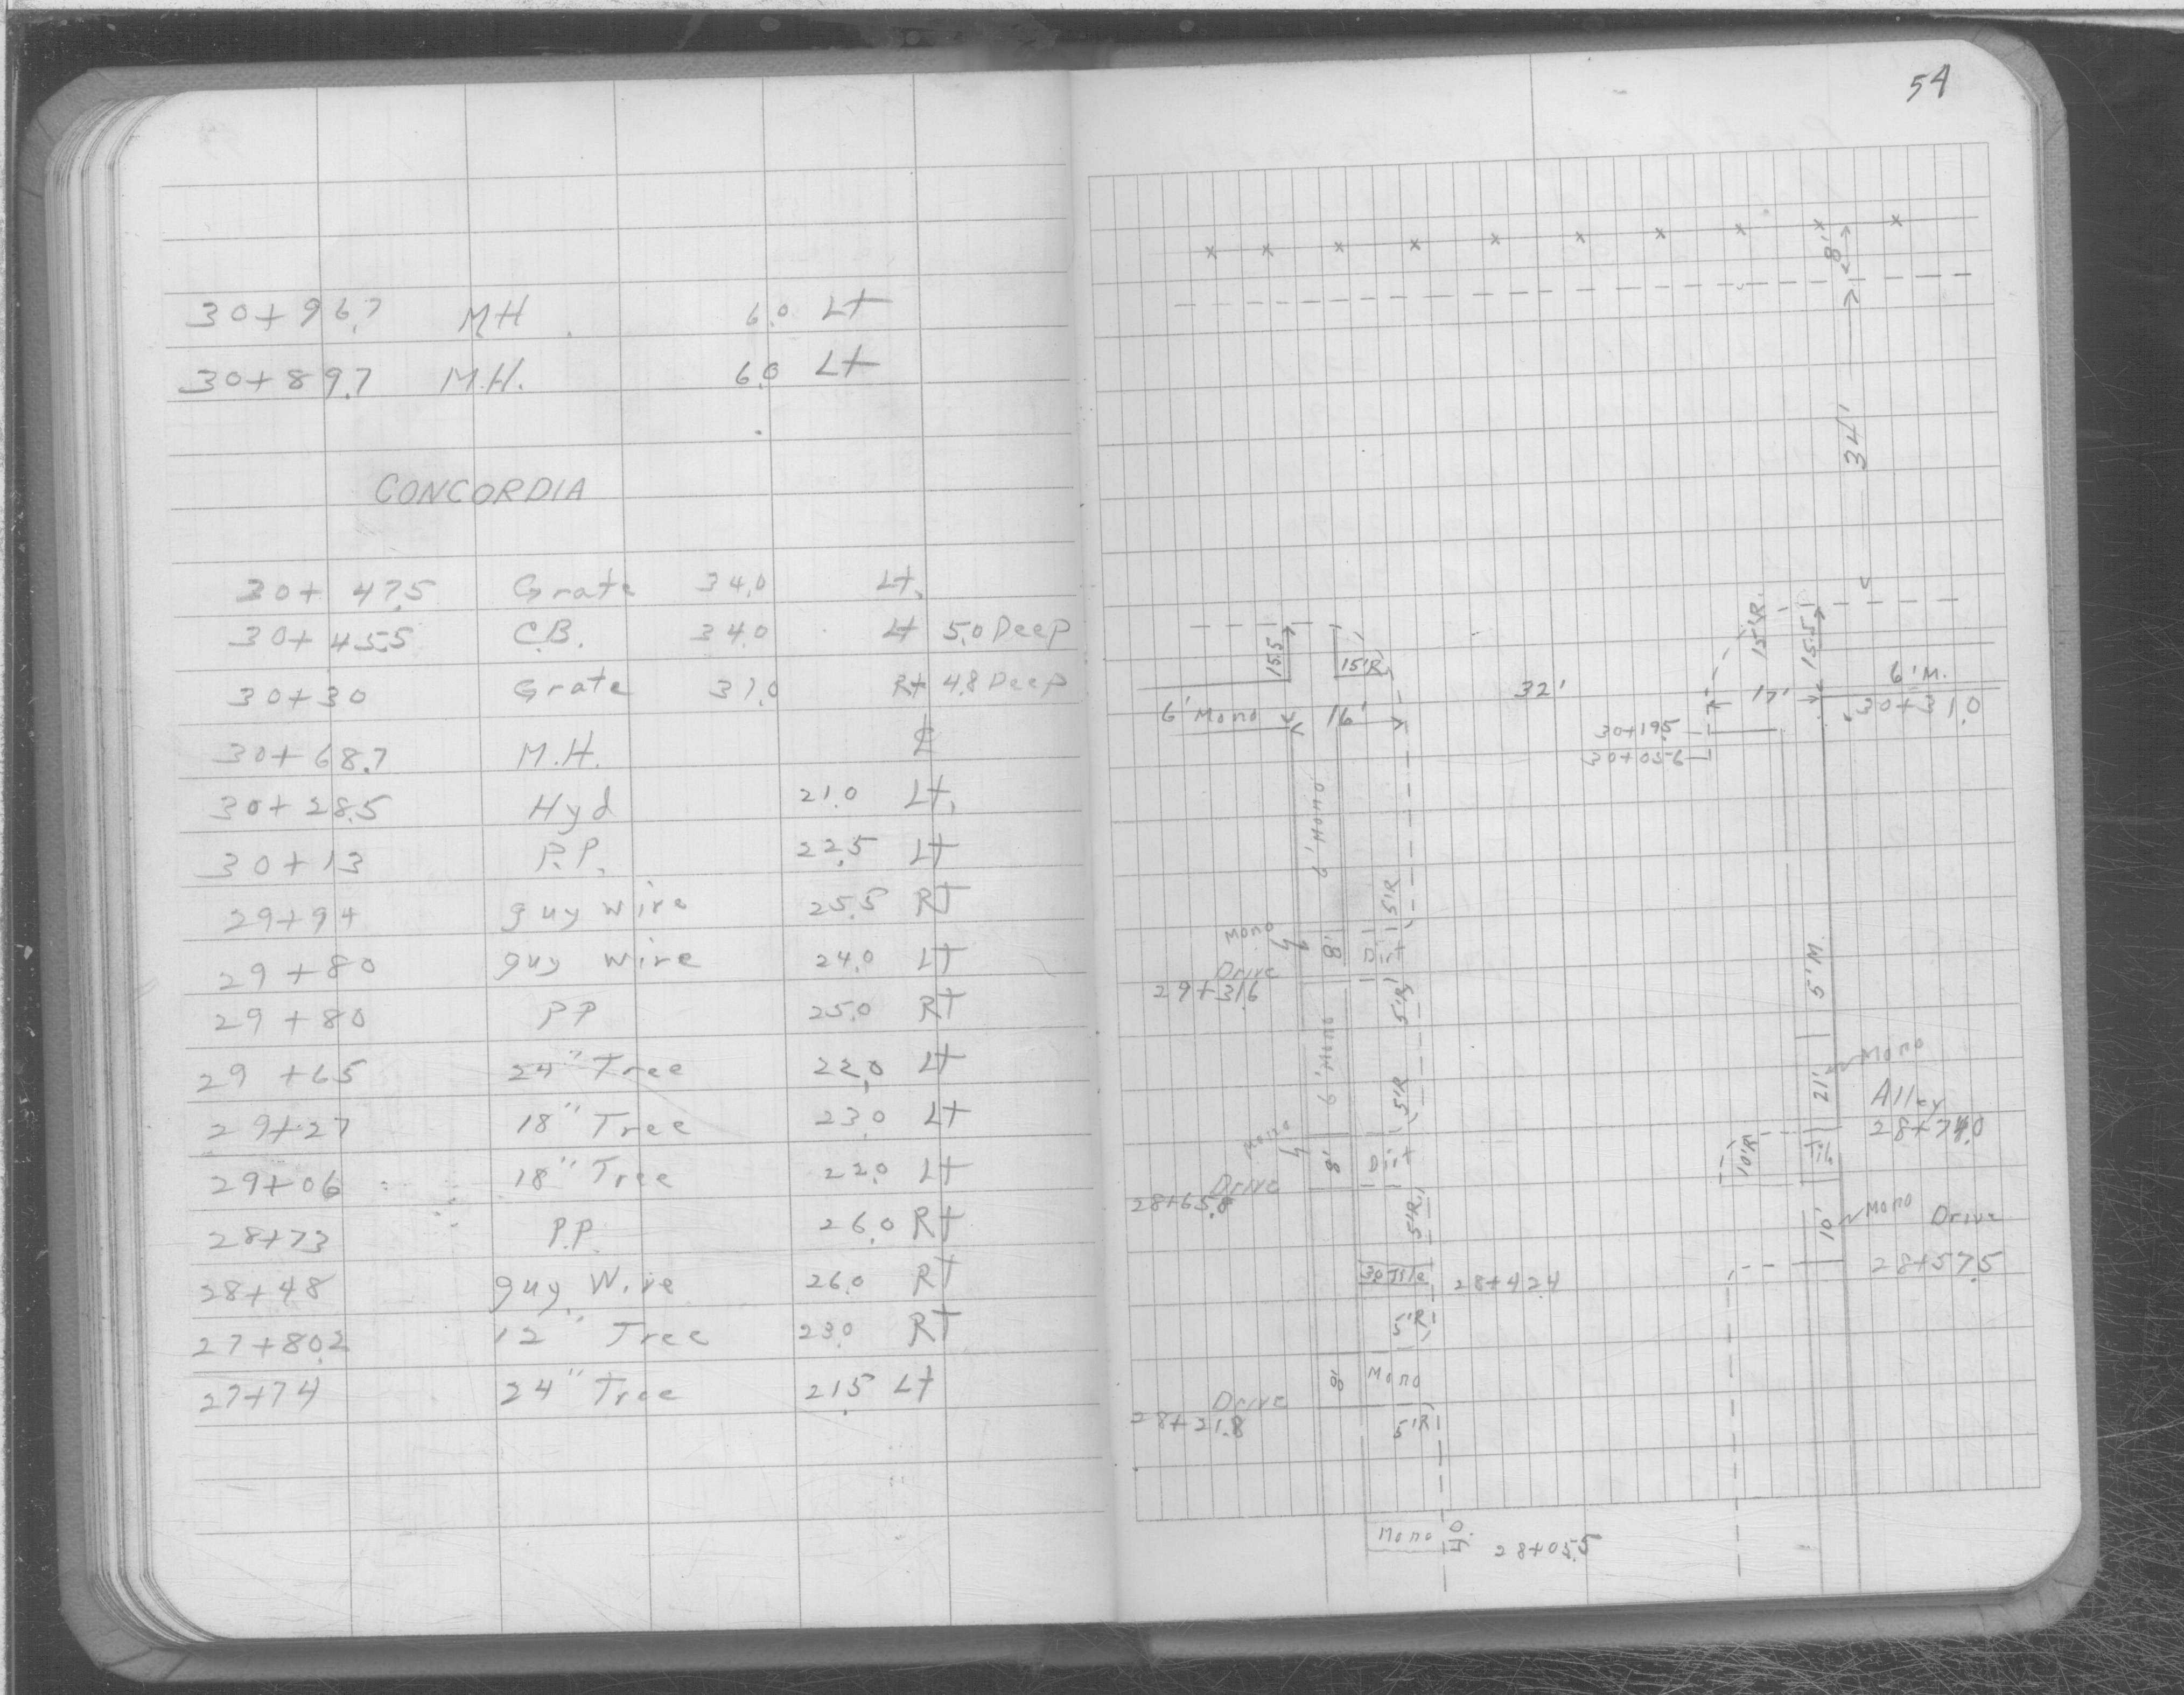 54
30+96.7 M.H. 6.0 Lt
30+89.7 M.H. 6.0 Lt
CONCORDIA
30+47.5 Grate 34.0 Lt.
30+45.5 C.B. 34.0 Lt 5.0 Deep
30+30 Grate 37.0 Rt 4.8 Deep
30+68.7 M.H. ℄
30+28.5 Hyd 21.0 Lt.
30+13 P.P. 22.5 Lt
29+94 guy wire 25.5 RT
29+80 guy wire 24.0 LT
29+80 PP 25.0 RT
29+65 24" Tree 22.0 Lt
29+27 18" Tree 23.0 Lt
29+06 18" Tree 22.0 Lt
28+73 P.P. 26.0 Rt
28+48 guy Wire 26.0 RT
27+80.2 12" Tree 23.0 RT
27+74 24" Tree 21.5 Lt
8'
34'
15.5 15'R 15'R. 15.5
6' Mono 16' 32' 17' 6'M.
30+31.0
30+19.5
30+05.6
6' Mono
5'R
Mono 8' Dirt
Drive
29+31.6
5'R
5'M.
6' Mono
5'R
21' Mono
Alley
28+74.0
Mono 8' Dirt
10'R
Drive
28+65.8
5'R
10' Mono Drive
28+57.5
30 Tile 28+42.4
5'R
8' Mono
Drive
28+21.8
5'R
Mono 28+05.5